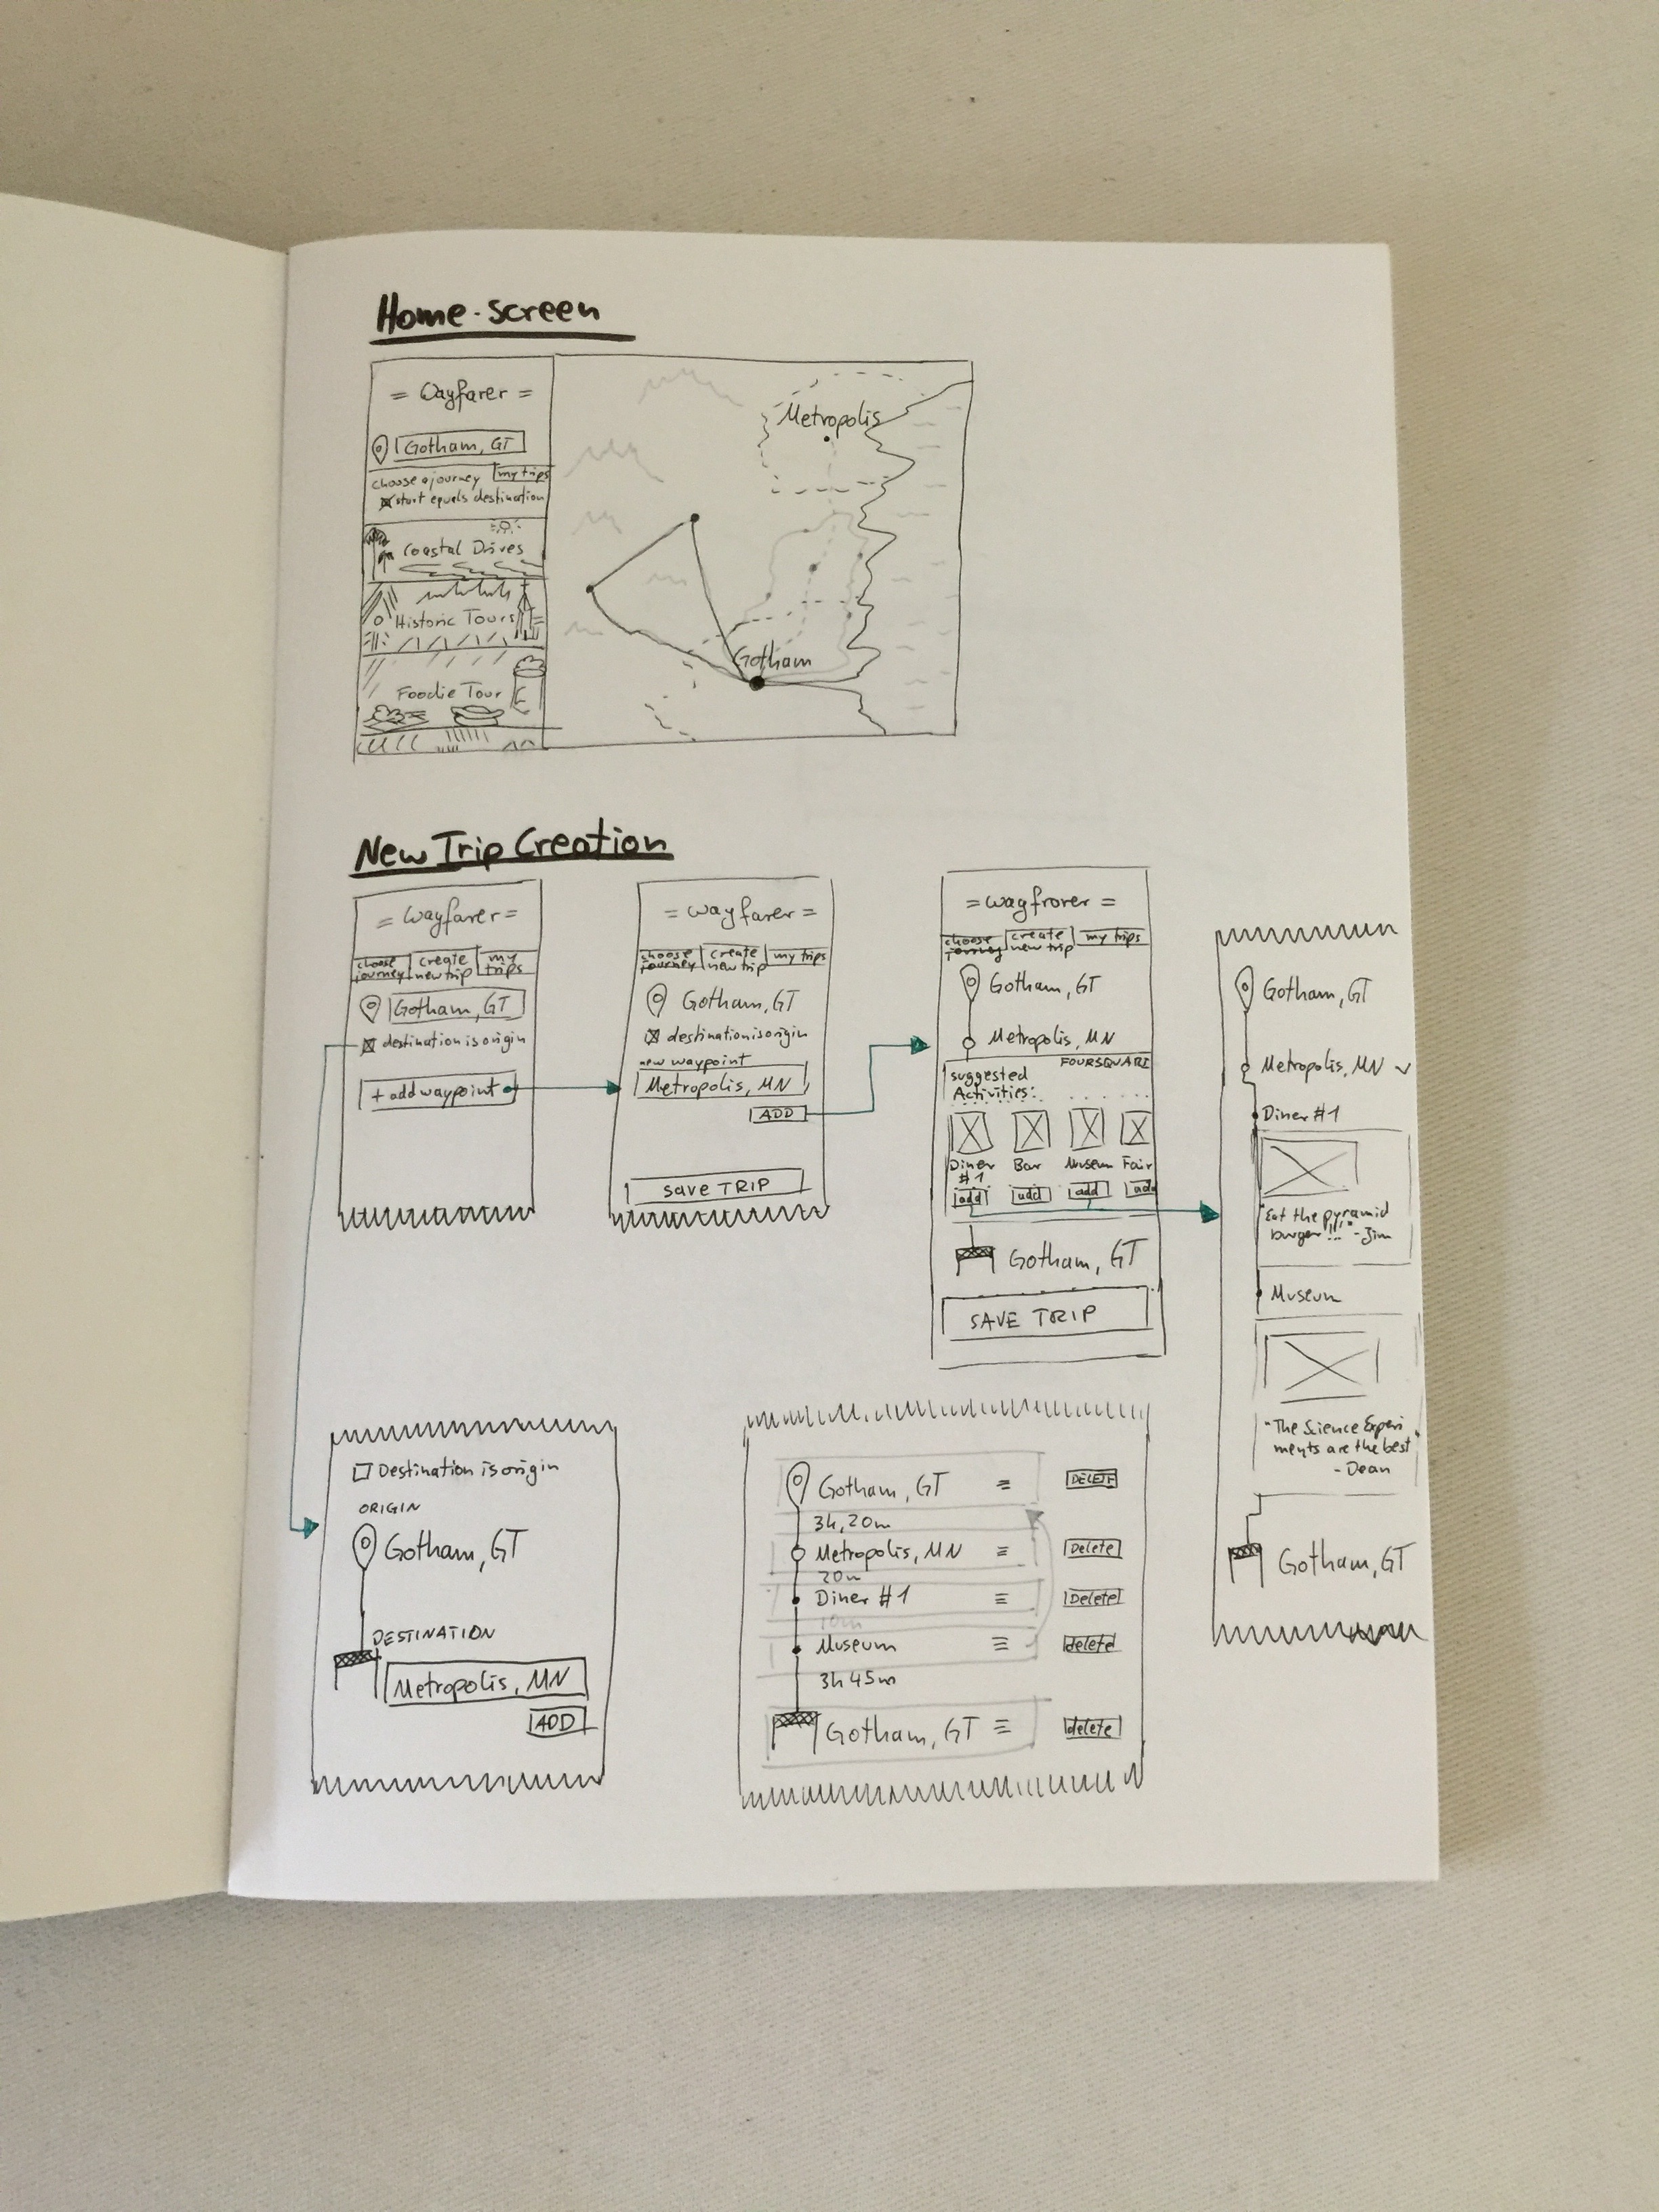 Home-screen
= Wayfarer =
Gotham, GT
choose a journey my trips
start equals destination
Coastal Drives
Historic Tours
Foodie Tour
Metropolis
Gotham
New Trip Creation
= Wayfarer =
choose create my
journey new trip trips
Gotham, GT
destination is origin
+ add waypoint
= wayfarer =
choose create my trips
journey new trip
Gotham, GT
destination is origin
new waypoint
Metropolis, MN
ADD
save TRIP
= wagfrorer =
choose create my trips
journey new trip
Gotham, GT
Metropolis, MN
FOURSQUARE
suggested
Activities:
Diner Bar Museum Fair
#1
add add add add
Gotham, GT
SAVE TRIP
Gotham, GT
Metropolis, MN
Diner #1
"Eat the pyramid
burger!!!" - Jim
Museum
"The Science Experi
ments are the best"
- Dean
Gotham, GT
Destination is origin
ORIGIN
Gotham, GT
DESTINATION
Metropolis, MN
ADD
Gotham, GT DELETE
3h, 20m
Metropolis, MN Delete
20m
Diner #1 Delete
10m
Museum delete
3h 45m
Gotham, GT delete